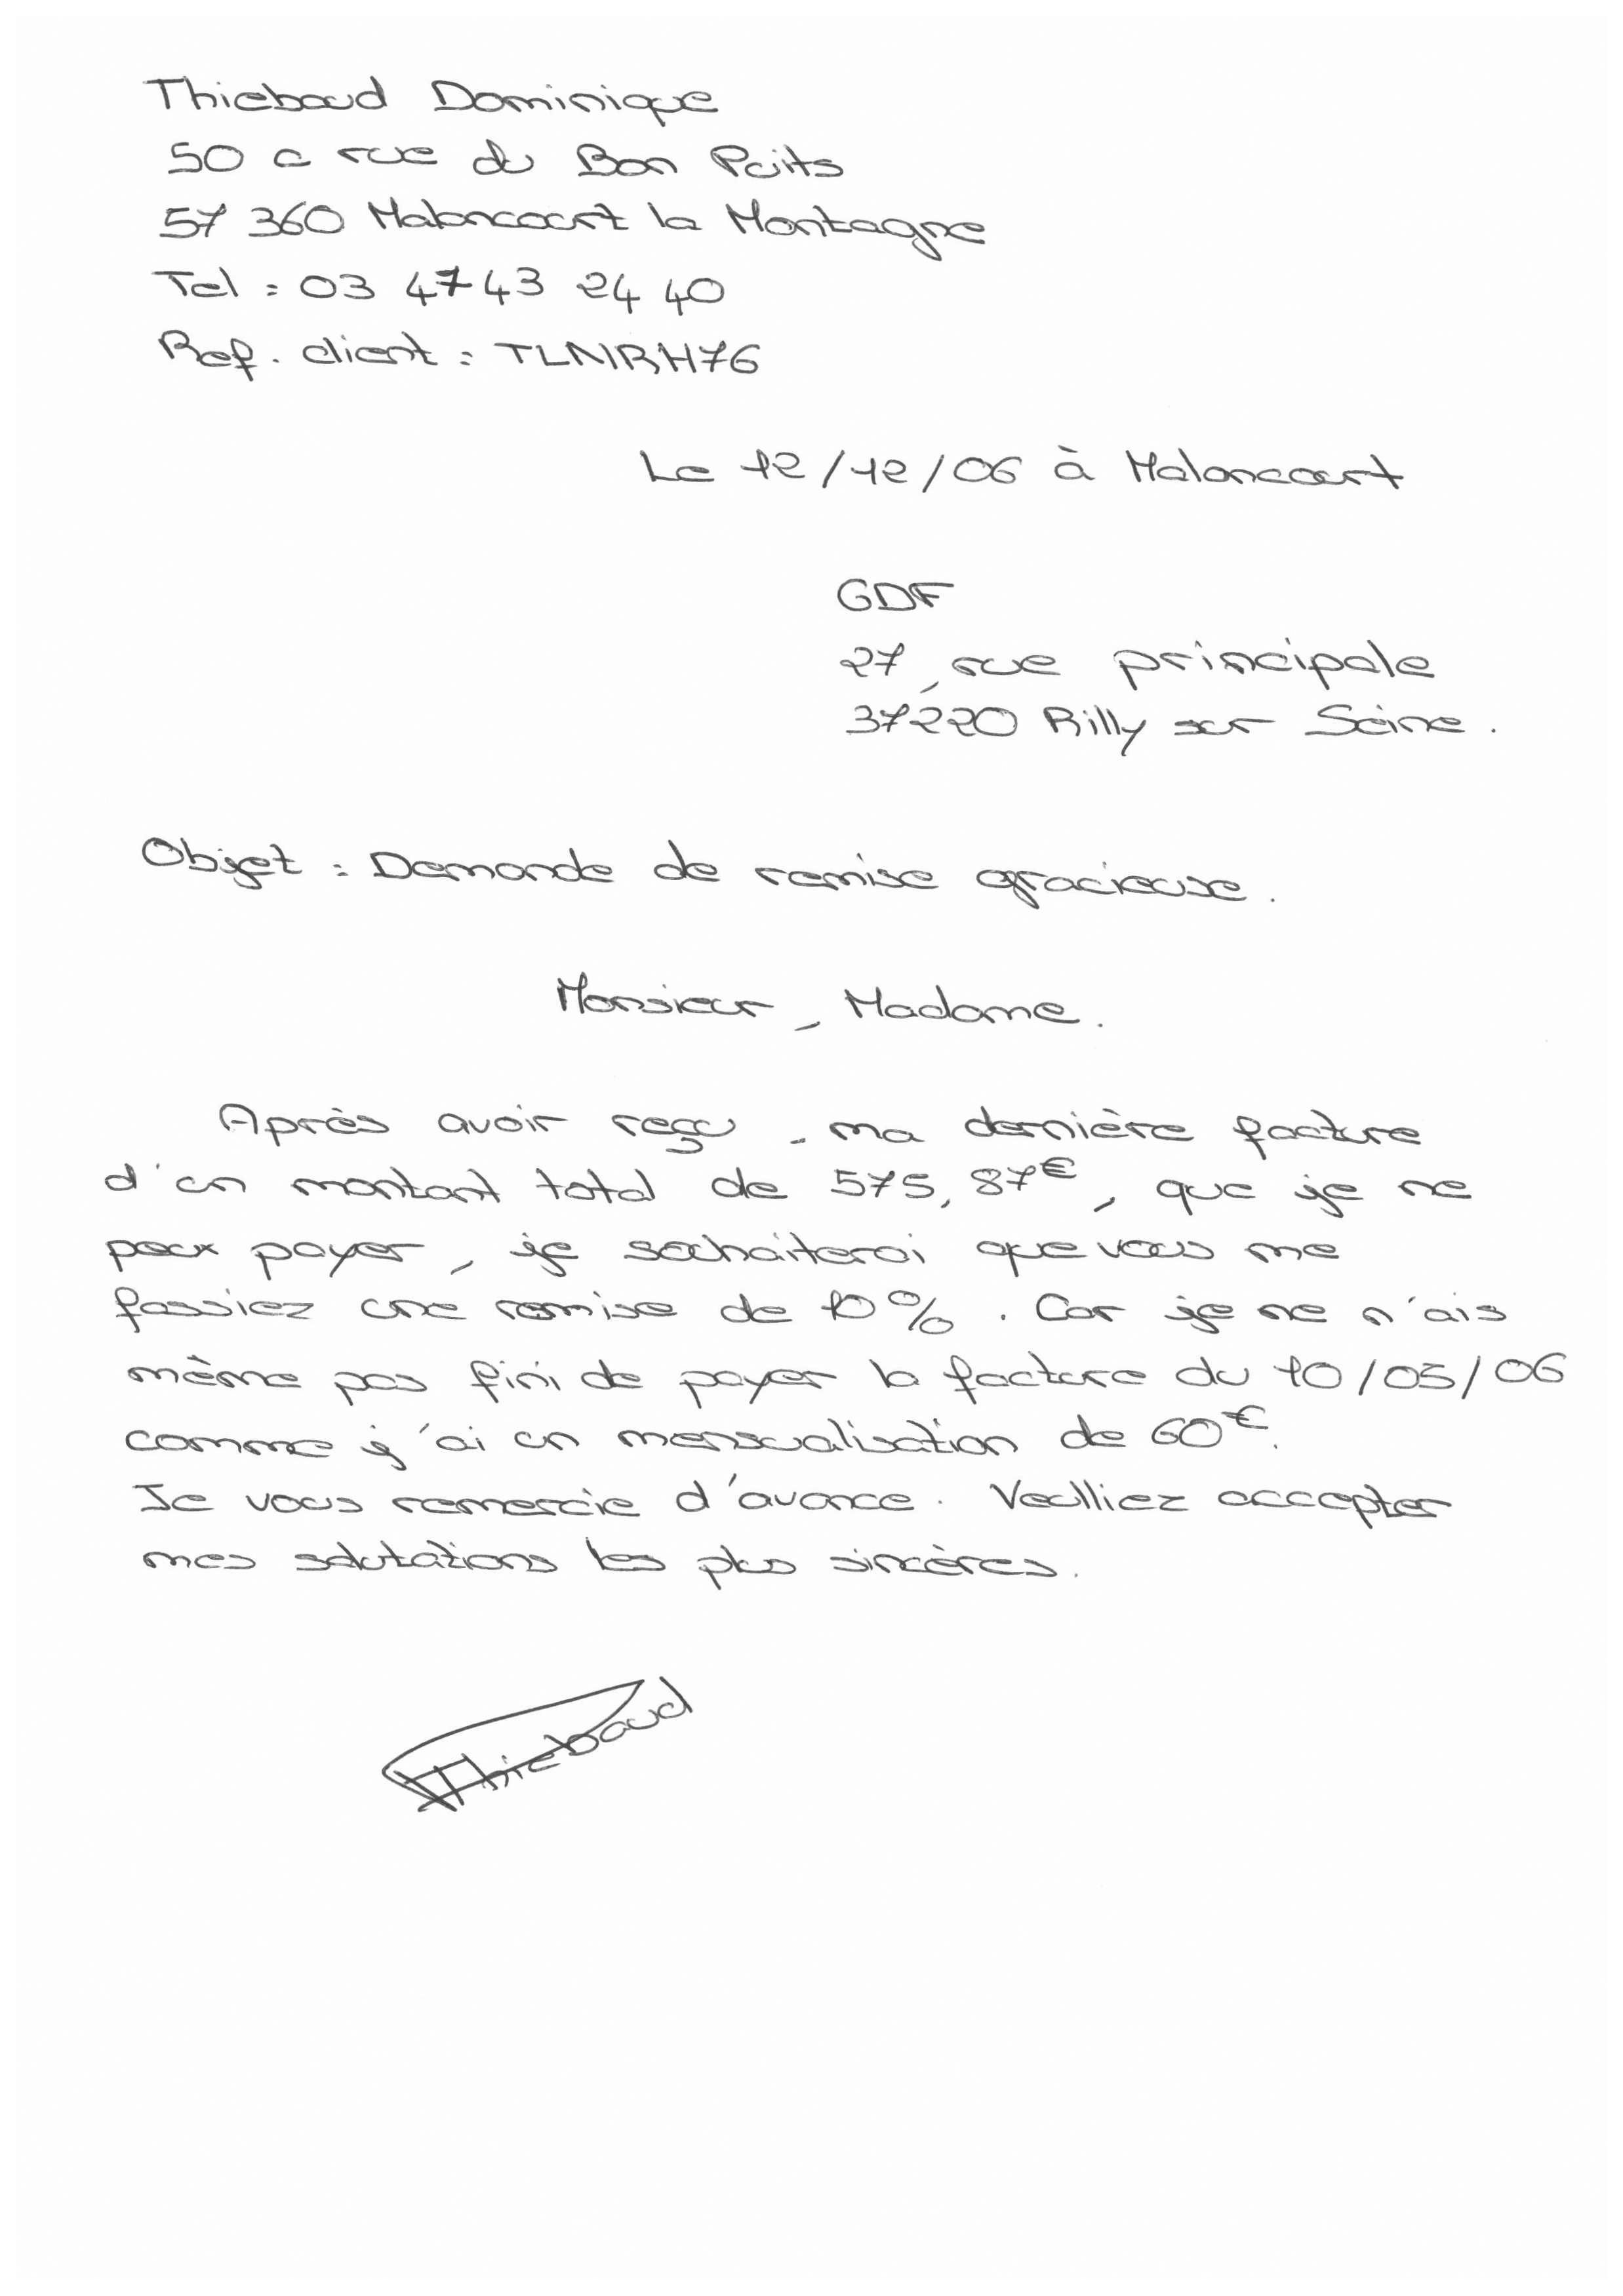 Thiebaud Dominique
50 a rue du Bon Puits
57 360 Maloncourt la Montagne
Tel : 03 47 43 24 40
Ref. client : TLNRH76
Le 12/12/06 à Maloncourt
GDF
27, rue principale
37220 Rilly sur Seine.
Objet : Demande de remise gracieuse.
Monsieur, Madame.
Après avoir reçu, ma dernière facture
d'un montant total de 575,87€, que je ne
peux payer, je souhaiterai que vous me
fassiez une remise de 10%. Car je ne n'ais
même pas fini de payer la facture du 10/05/06
comme j'ai un mensualisation de 60€.
Je vous remercie d'avance. Veulliez accepter
mes salutations les plus sincères.
Thiebaud